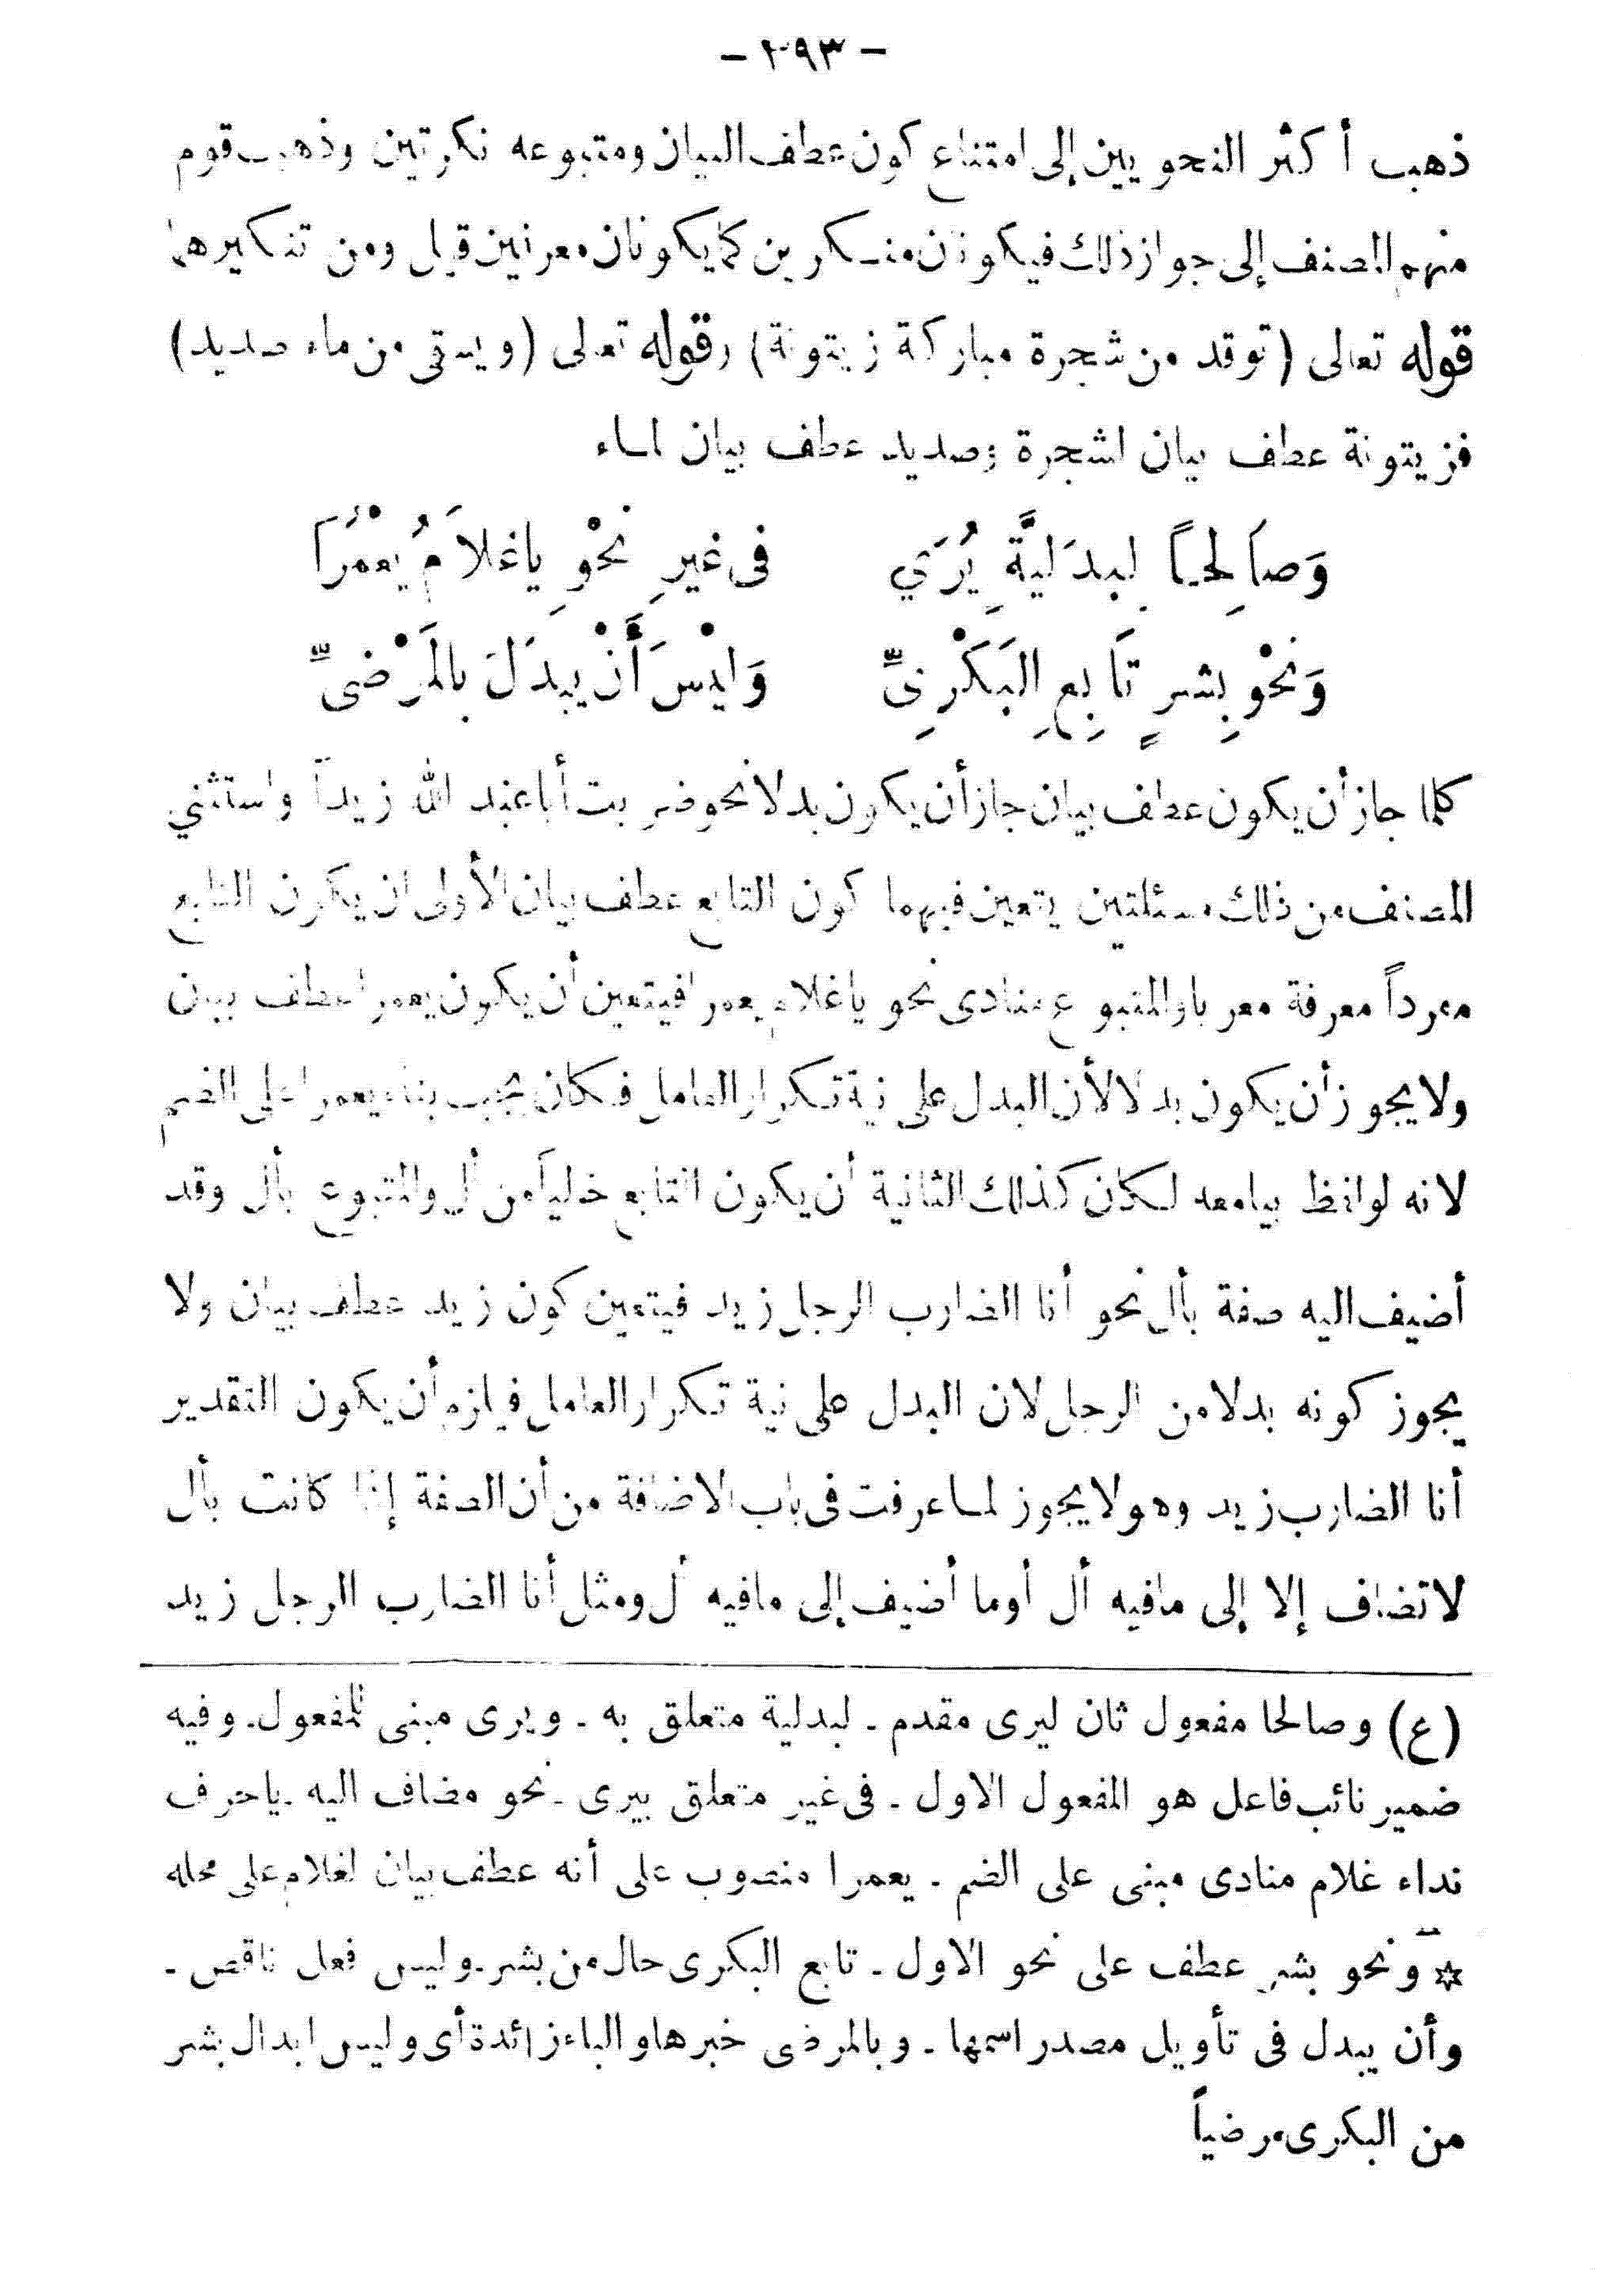 - ٢٩٣ -
ذهب أكثر النحويين إلى امتناع كون عطف البيان ومتبوعه نكرتين وذهب قوم
منهم المصنف إلى جواز ذلك فيكونان منكرين كما يكونان معرفين قيل ومن تنكيرهما
قوله تعالى (توقد من شجرة مباركة زيتونة) وقوله تعالى (ويسقى من ماء صديد)
فزيتونة عطف بيان لشجرة وصديد عطف بيان لماء
وَصَالِحاً لِبَدَلِيَّةٍ يُرَي فى غيرِ نحْوِ ياغلاَمُ يَعْمُرَا
وَنحْوِ بِشرٍ تَابِعِ البَكْرِىِّ وَليْسَ أَنْ يبدَلَ بالمَرْضىِّ
كلما جاز أن يكون عطف بيان جاز أن يكون بدلا نحو ضربت أبا عبد الله زيداً واستثني
المصنف من ذلك مسئلتين يتعين فيهما كون التابع عطف بيان الأولى ان يكون التابع
مفرداً معرفة معربا والمتبوع منادى نحو ياغلام يعمرا فيتعين أن يكون يعمرا عطف بيان
ولا يجوز أن يكون بدلا لأن البدل على نية تكرار العامل فكان يجب بناء يعمرا على الضم
لانه لو لفظ بيا معه لكان كذلك الثانية أن يكون التابع خالياً من أل والمتبوع بأل وقد
أضيف اليه صفة بأل نحو أنا الضارب الرجل زيد فيتعين كون زيد عطف بيان ولا
يجوز كونه بدلا من الرجل لان البدل على نية تكرار العامل فيلزم أن يكون التقدير
أنا الضارب زيد وهو لا يجوز لما عرفت فى باب الاضافة من أن الصفة إذا كانت بأل
لا تضاف إلا إلى مافيه أل أوما أضيف إلى مافيه أل ومثل أنا الضارب الرجل زيد
(ع) وصالحا مفعول ثان ليرى مقدم - لبدلية متعلق به - ويرى مبنى للمفعول - وفيه
ضمير نائب فاعل هو المفعول الاول - فى غير متعلق بيرى - نحو مضاف اليه - ياحرف
نداء غلام منادى مبنى على الضم - يعمرا منصوب على أنه عطف بيان لغلام على محله
✡ ونحو بشر عطف على نحو الاول - تابع البكرى حال من بشر - وليس فعل ناقص -
وأن يبدل فى تأويل مصدر اسمها - وبالمرضى خبرها والباء زائدة أى وليس ابدال بشر
من البكرى مرضياً